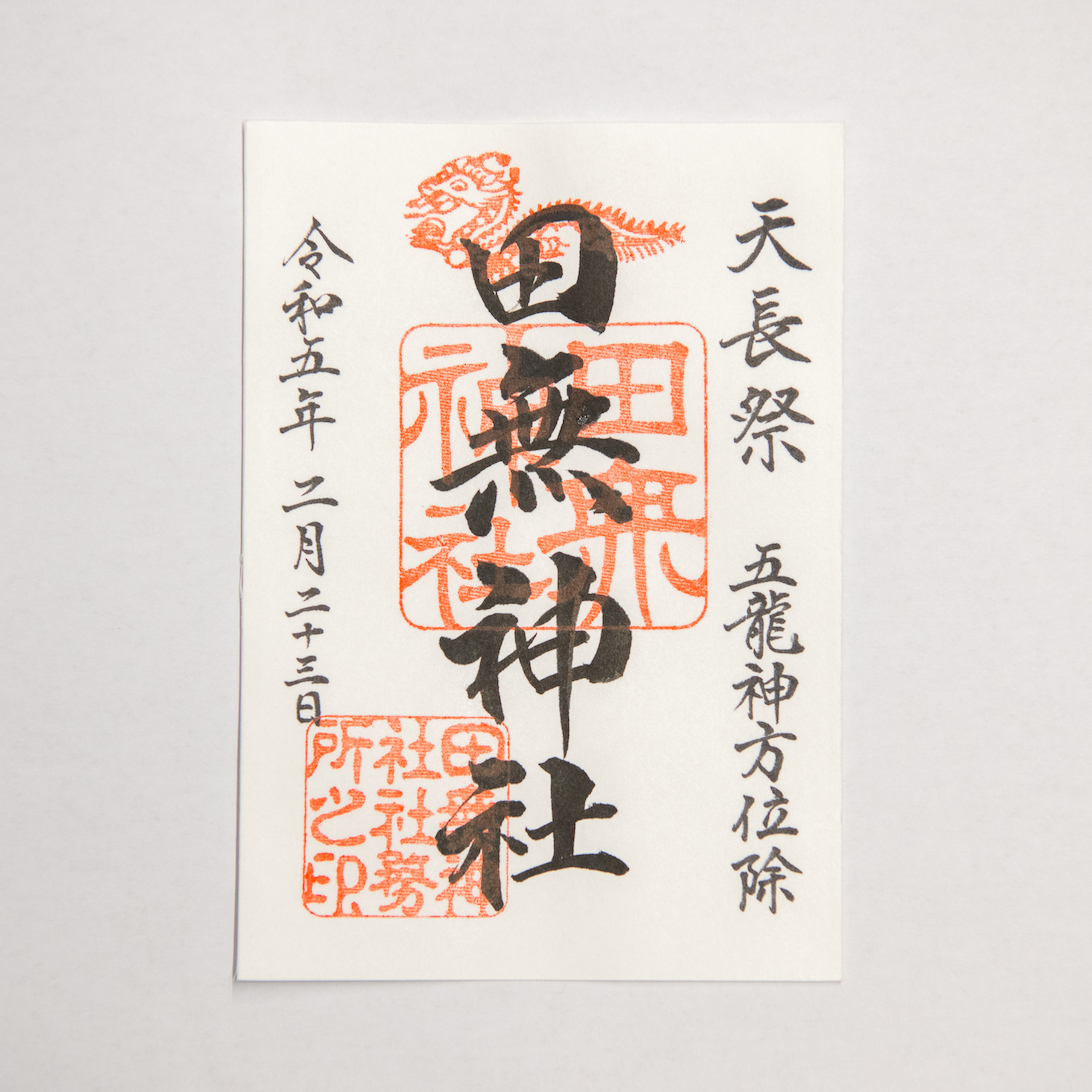 天長祭 五龍神方位除
田無神社
田無神社
令和五年 二月 二十三日
田無神
社社務
所之印